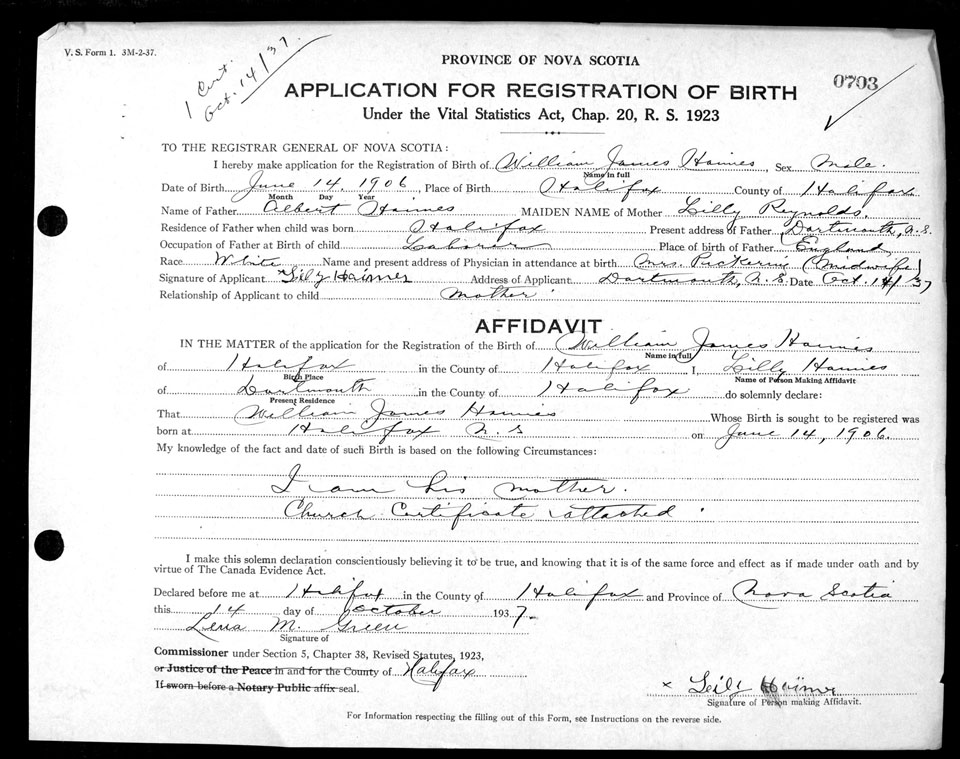 V. S. Form 1. 3M-2-37.
1 Cert.
Oct. 14/37.
PROVINCE OF NOVA SCOTIA
0703
APPLICATION FOR REGISTRATION OF BIRTH
Under the Vital Statistics Act, Chap. 20, R. S. 1923
TO THE REGISTRAR GENERAL OF NOVA SCOTIA:
I hereby make application for the Registration of Birth of William James Haines, Sex Male.
Name in full
Date of Birth June 14, 1906, Place of Birth Halifax County of Halifax
Month Day Year
Name of Father Albert Haines MAIDEN NAME of Mother Lilly Reynolds.
Residence of Father when child was born Halifax Present address of Father Dartmouth, N.S.
Occupation of Father at Birth of child Laborer Place of birth of Father England
Race White Name and present address of Physician in attendance at birth Mrs. Pickering (Midwife)
Signature of Applicant Lily Haines Address of Applicant Dartmouth, N.S. Date Oct. 14/37
Relationship of Applicant to child mother
AFFIDAVIT
IN THE MATTER of the application for the Registration of the Birth of William James Haines
Name in full
of Halifax in the County of Halifax I, Lilly Haines
Birth Place Name of Person Making Affidavit
of Dartmouth in the County of Halifax do solemnly declare:
Present Residence
That William James Haines Whose Birth is sought to be registered was
born at Halifax N.S on June 14, 1906.
My knowledge of the fact and date of such Birth is based on the following Circumstances:
I am his mother.
Church Certificate attached.
I make this solemn declaration conscientiously believing it to be true, and knowing that it is of the same force and effect as if made under oath and by
virtue of The Canada Evidence Act.
Declared before me at Halifax in the County of Halifax and Province of Nova Scotia
this 14 day of October 1937.
Lena M. Green
Signature of
Commissioner under Section 5, Chapter 38, Revised Statutes, 1923,
or Justice of the Peace in and for the County of Halifax
If sworn before a Notary Public affix seal.
x Leily Haines
Signature of Person making Affidavit.
For Information respecting the filling out of this Form, see Instructions on the reverse side.